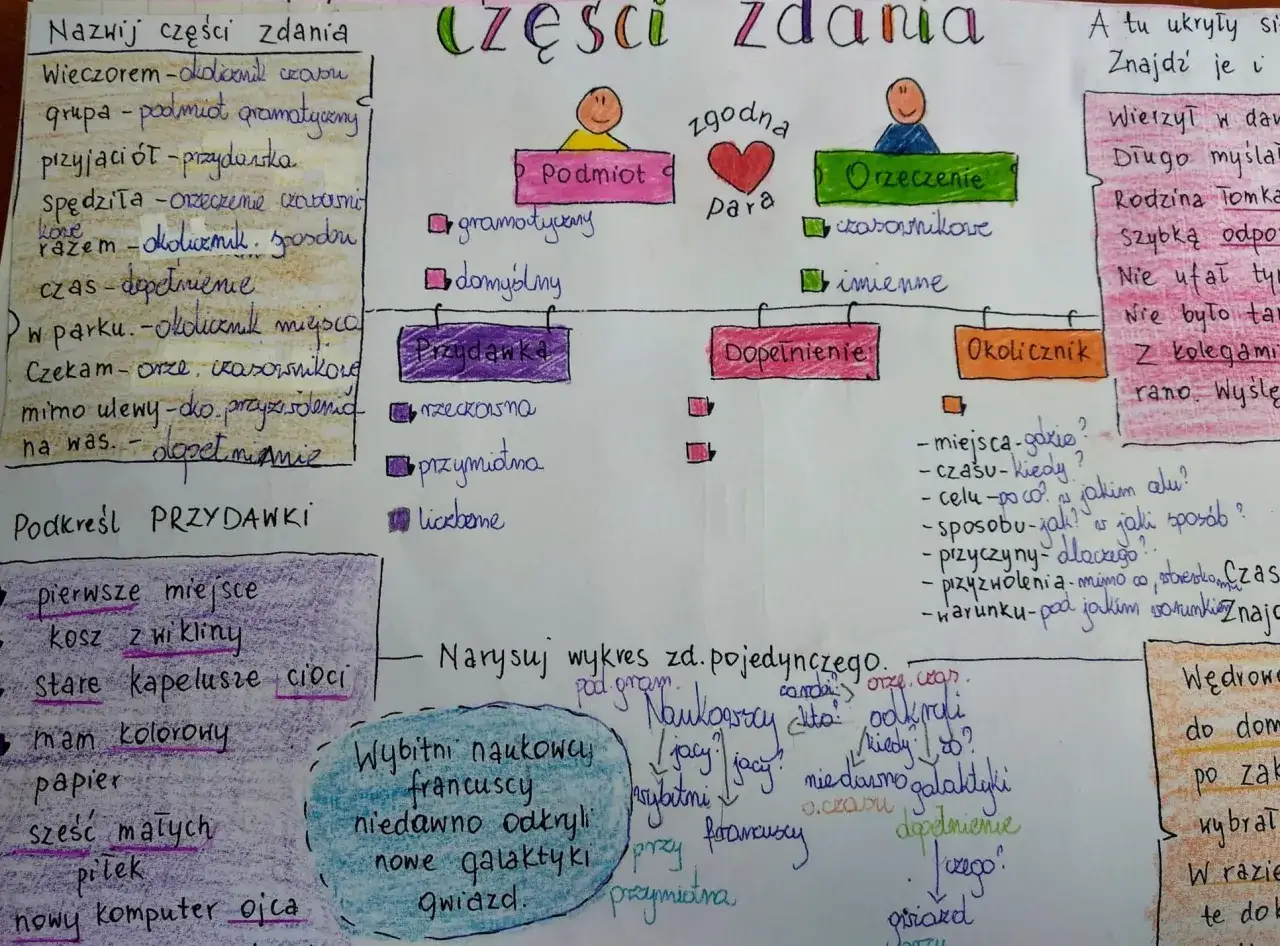 Części zdania
Nazwij części zdania
Wieczorem - okolicznik czasu
grupa - podmiot gramatyczny
przyjaciół - przydawka
spędziła - orzeczenie czasowni-
kowe
razem - okolicznik. sposobu
czas - dopełnienie
w parku. - okolicznik miejsca
Czekam - orze. czasownikowe
mimo ulewy - oko. przyzwolenia
na was. - dopełnienie
Podmiot
gramatyczny
domyślny
zgodna
para
Orzeczenie
czasownikowe
imienne
A tu ukryły si
Znajdź je i
Wierzył w daw
Długo myślał
Rodzina Tomka
szybką odpo
Nie ufał ty
Nie było ta
Z kolegami
rano. Wyślę
Przydawka
rzeczowna
przymiotna
liczebne
Dopełnienie
Okolicznik
- miejsca - gdzie?
- czasu - kiedy?
- celu - po co? w jakim celu?
- sposobu - jak? w jaki sposób?
- przyczyny - dlaczego?
- przyzwolenia - mimo co, wbrew
- warunku - pod jakim warunkiem
Podkreśl PRZYDAWKI
pierwsze miejsce
kosz z wikliny
stare kapelusze cioci
mam kolorowy
papier
sześć małych
piłek
nowy komputer ojca
Narysuj wykres zd. pojedynczego.
Wybitni naukowcy
francuscy
niedawno odkryli
nowe galaktyki
gwiazd.
pod. gram. orze. czas.
Naukowcy kto? odkryli
jacy? jacy? kiedy? co?
wybitni francuscy niedawno galaktyki
przy
przymiotna
o. czasu
dopełnienie
czego?
gwiazd
przy
Czas
Znajd
Wędrow
do dom
po zak
wybrał
W razie
te do